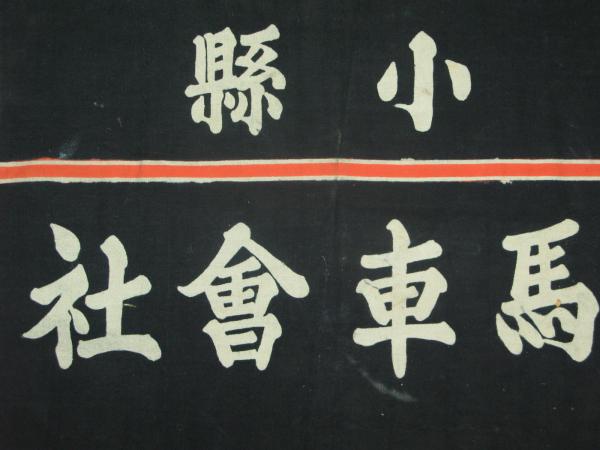 小縣
馬車會社